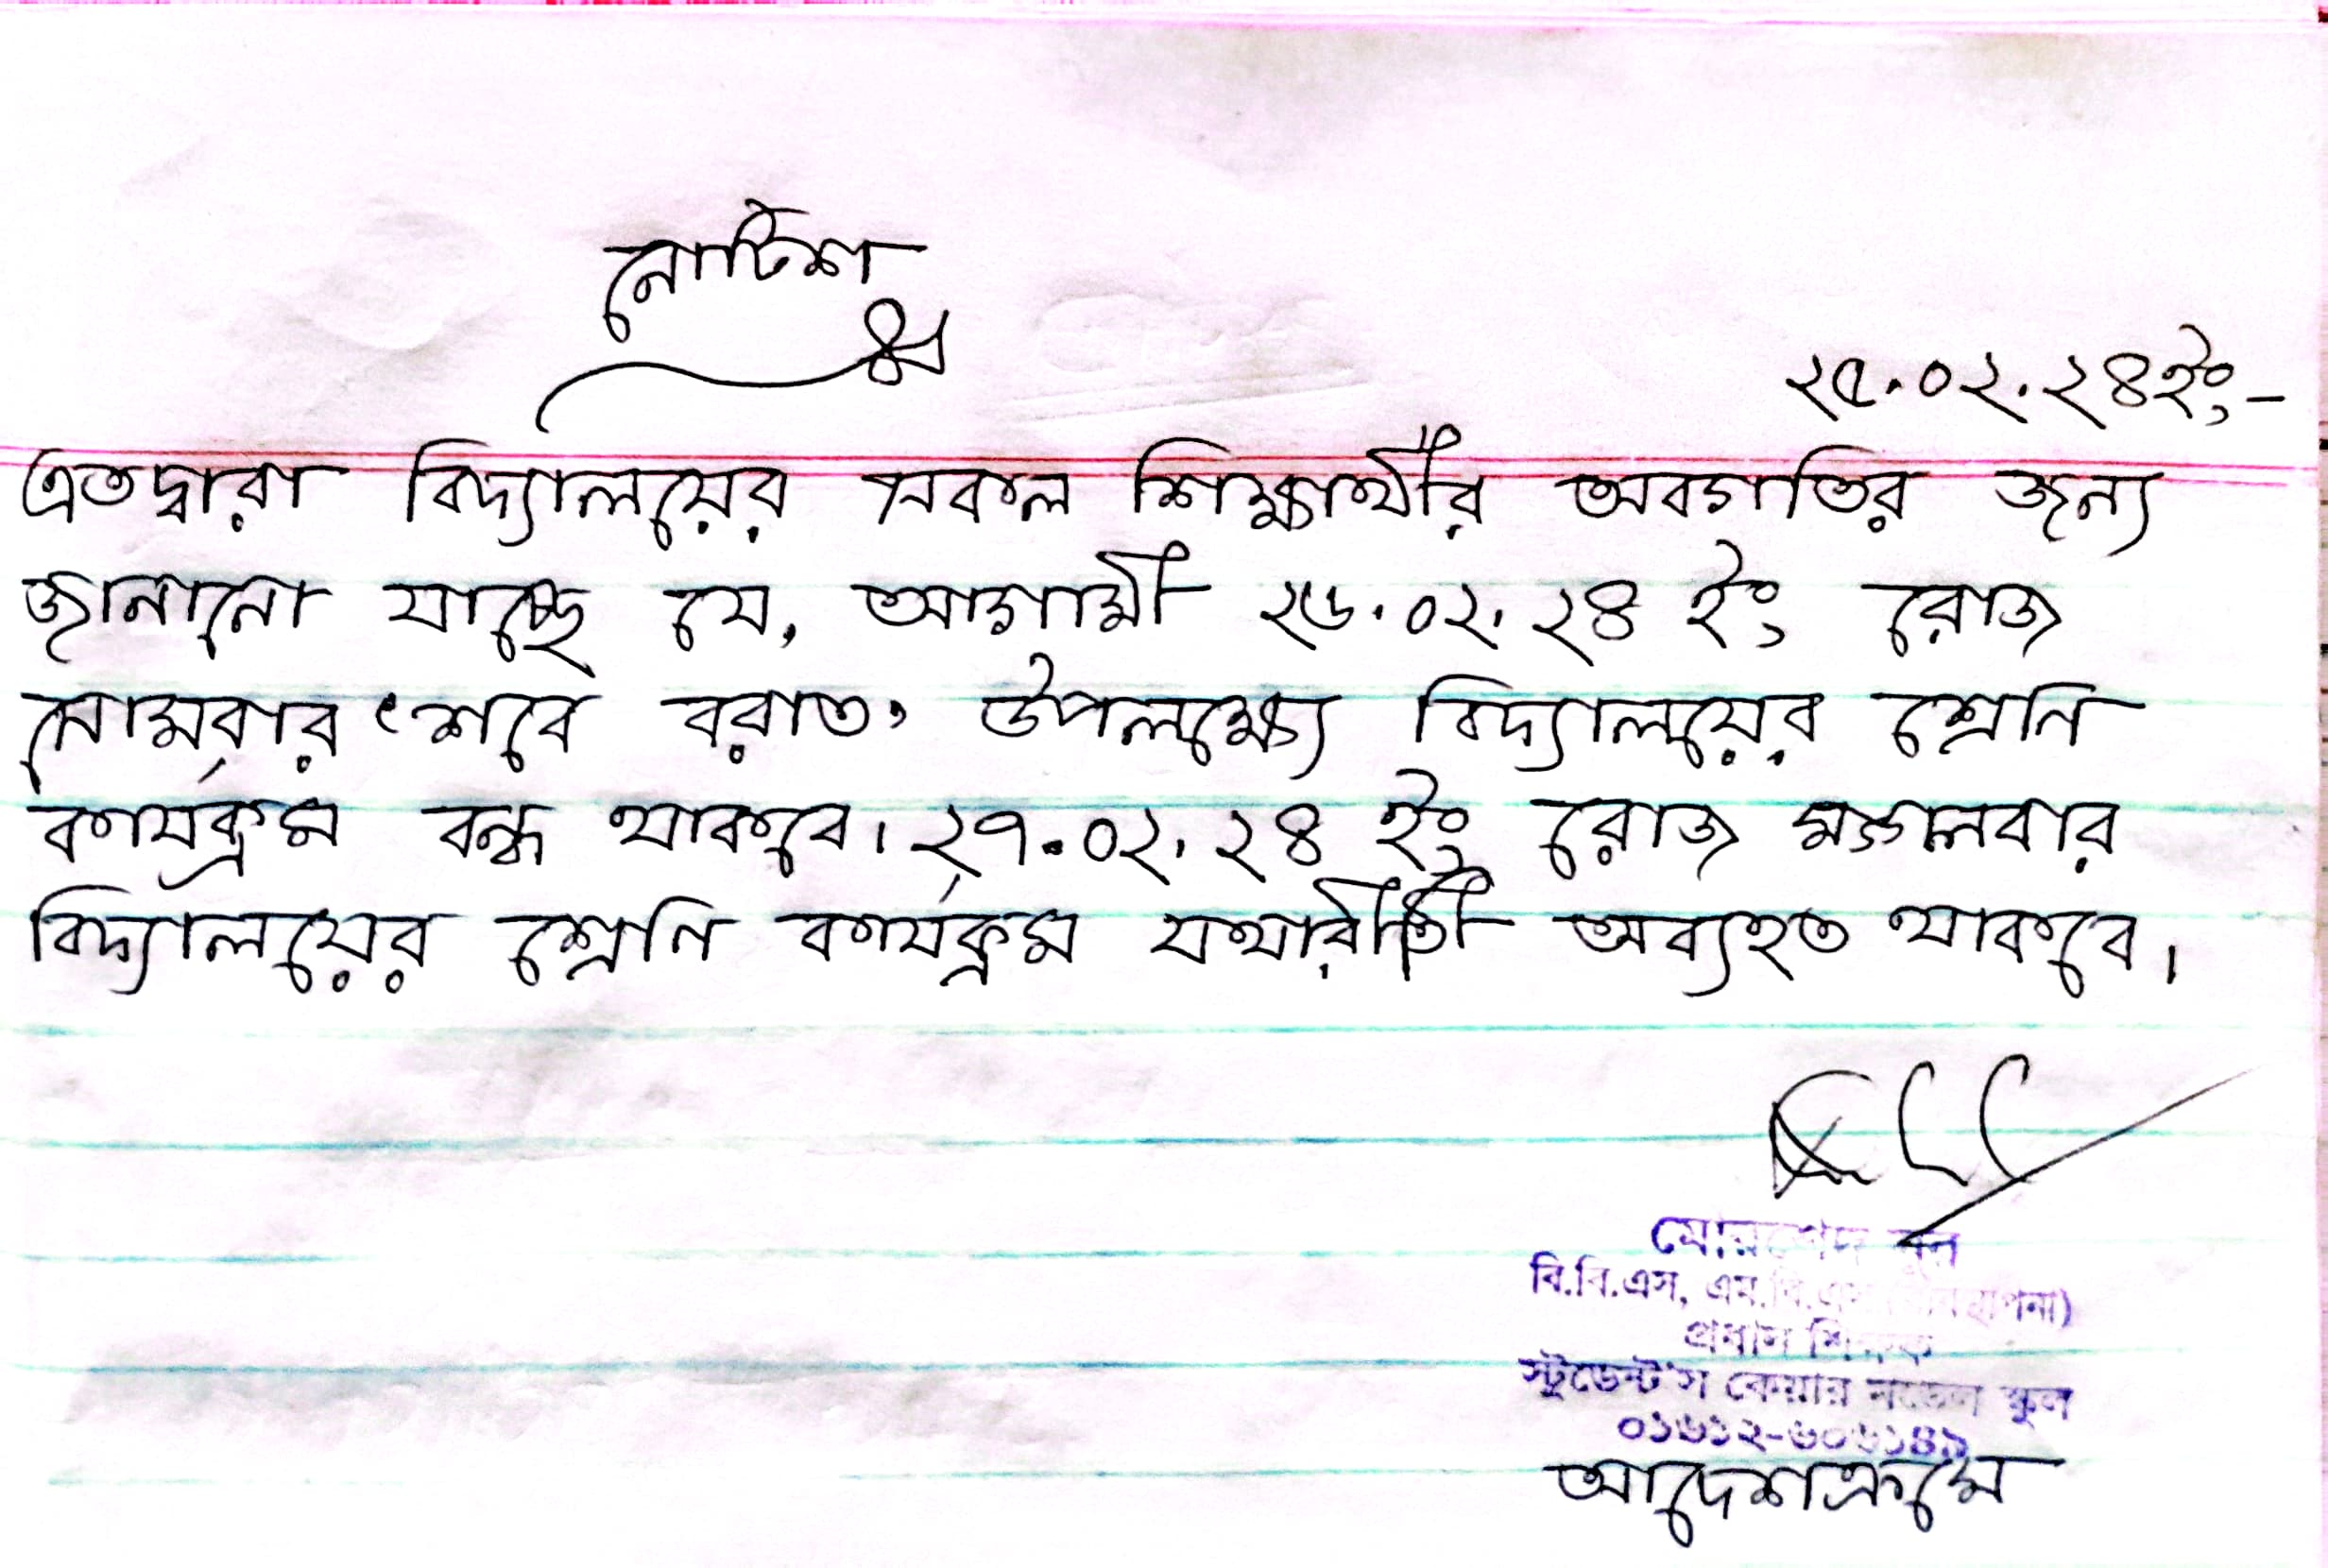 নোটিশ
২৫.০২.২৪ইং,-
এতদ্বারা বিদ্যালয়ের সকল শিক্ষার্থীর অবগতির জন্য
জানানো যাচ্ছে যে, আগামী ২৬.০২.২৪ ইং, রোজ
সোমবার ‘শবে বরাত’ উপলক্ষ্যে বিদ্যালয়ের শ্রেনি
কার্যক্রম বন্ধ থাকবে। ২৭.০২.২৪ ইং, রোজ মঙ্গলবার
বিদ্যালয়ের শ্রেনি কার্যক্রম যথারীতী অব্যহত থাকবে।
বি.বি.এস, এম.বি.এস
প্রধান শিক্ষক
স্টুডেন্ট'স কেয়ার মডেল স্কুল
আদেশক্রমে